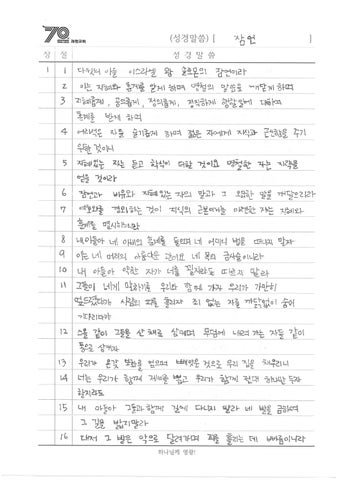 70 (성경말씀) [ 잠언 ]
장 절 성 경 말 씀
1 1 다윗의 아들 이스라엘 왕 솔로몬의 잠언이라
2 이는 지혜와 훈계를 알게 하며 명철의 말씀을 깨닫게 하며
3 지혜롭게, 공의롭게, 정의롭게, 정직하게 행할 일에 대하여
훈계를 받게 하며
4 어리석은 자를 슬기롭게 하며 젊은 자에게 지식과 근신함을 주기
위한 것이니
5 지혜 있는 자는 듣고 학식이 더할 것이요 명철한 자는 지략을
얻을 것이라
6 잠언과 비유와 지혜 있는 자의 말과 그 오묘한 말을 깨달으리라
7 여호와를 경외하는 것이 지식의 근본이거늘 미련한 자는 지혜와
훈계를 멸시하느니라
8 내 아들아 네 아비의 훈계를 들으며 네 어미의 법을 떠나지 말라
9 이는 네 머리의 아름다운 관이요 네 목의 금사슬이니라
10 내 아들아 악한 자가 너를 꾈지라도 따르지 말라
11 그들이 네게 말하기를 우리와 함께 가자 우리가 가만히
엎드렸다가 사람의 피를 흘리자 죄 없는 자를 까닭없이 숨어
기다리다가
12 스올 같이 그들을 산 채로 삼키며 무덤에 내려가는 자들 같이
통으로 삼키자
13 우리가 온갖 보화를 얻으며 빼앗은 것으로 우리 집을 채우리니
14 너는 우리와 함께 제비를 뽑고 우리가 함께 전대 하나만 두자
할지라도
15 내 아들아 그들과 함께 길에 다니지 말라 네 발을 금하여
그 길을 밟지 말라
16 대저 그 발은 악으로 달려가며 피를 흘리는 데 빠름이니라
하나님께 영광!